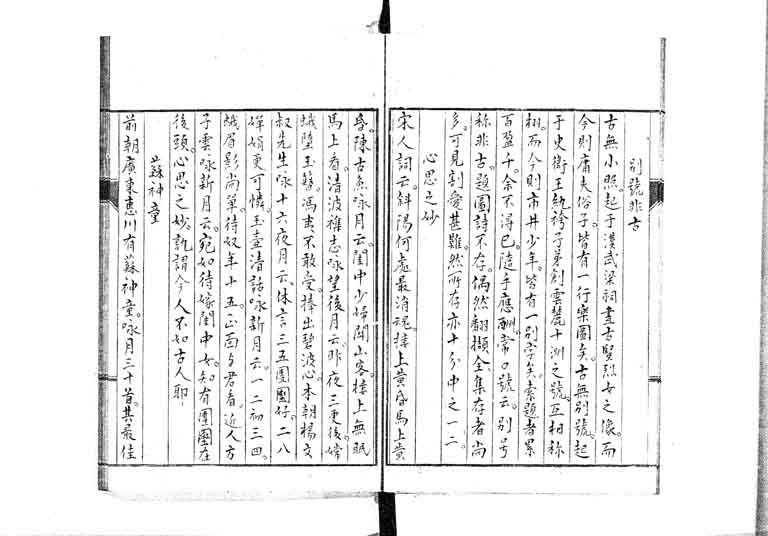 別號非古
古無小照。起于漢武梁祠畫古賢烈女之像。而
今則庸夫俗子。皆有一行樂圖矣。古無別號。起
于史衛王。紈袴子弟創雲麓十洲之號。互相称
栩。而今則市井少年。皆有一別字矣。索題者累
百盈千。余不得已。隨手應酬。常口號云。別号
称非古。題圖詩不存。偶然翻擷全集存者尚
多。可見割愛甚難。然所存亦十分中之一二
心思之妙
宋人詞云。斜陽何處最消魂。樓上黃昏。馬上黃
昏。陳古魚咏月云。閨中少婦關山客。樓上無眠
馬上看。清波襍志咏望後月云。昨夜三更後。嫦
娥墮玉簪。馮夷不敢受。捧出碧波心。本朝楊文
叔先生咏十六夜月云。休言三五團圞好。二八
嬋娟更可憐。玉壺清話咏新月云。一二初三四。
蛾眉影尚單。待奴年十五。正面与君看。近人方
子雲咏新月云。宛如待嫁閨中女。知有團圞在
後頭。心思之妙。孰謂今人不如古人耶
蘇神童
前朝廣東惠川有蘇神童。咏月三十首。其最佳